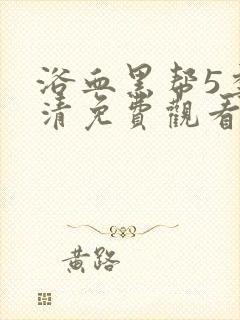 浴血黑帮5季
清免費觀看
黄路